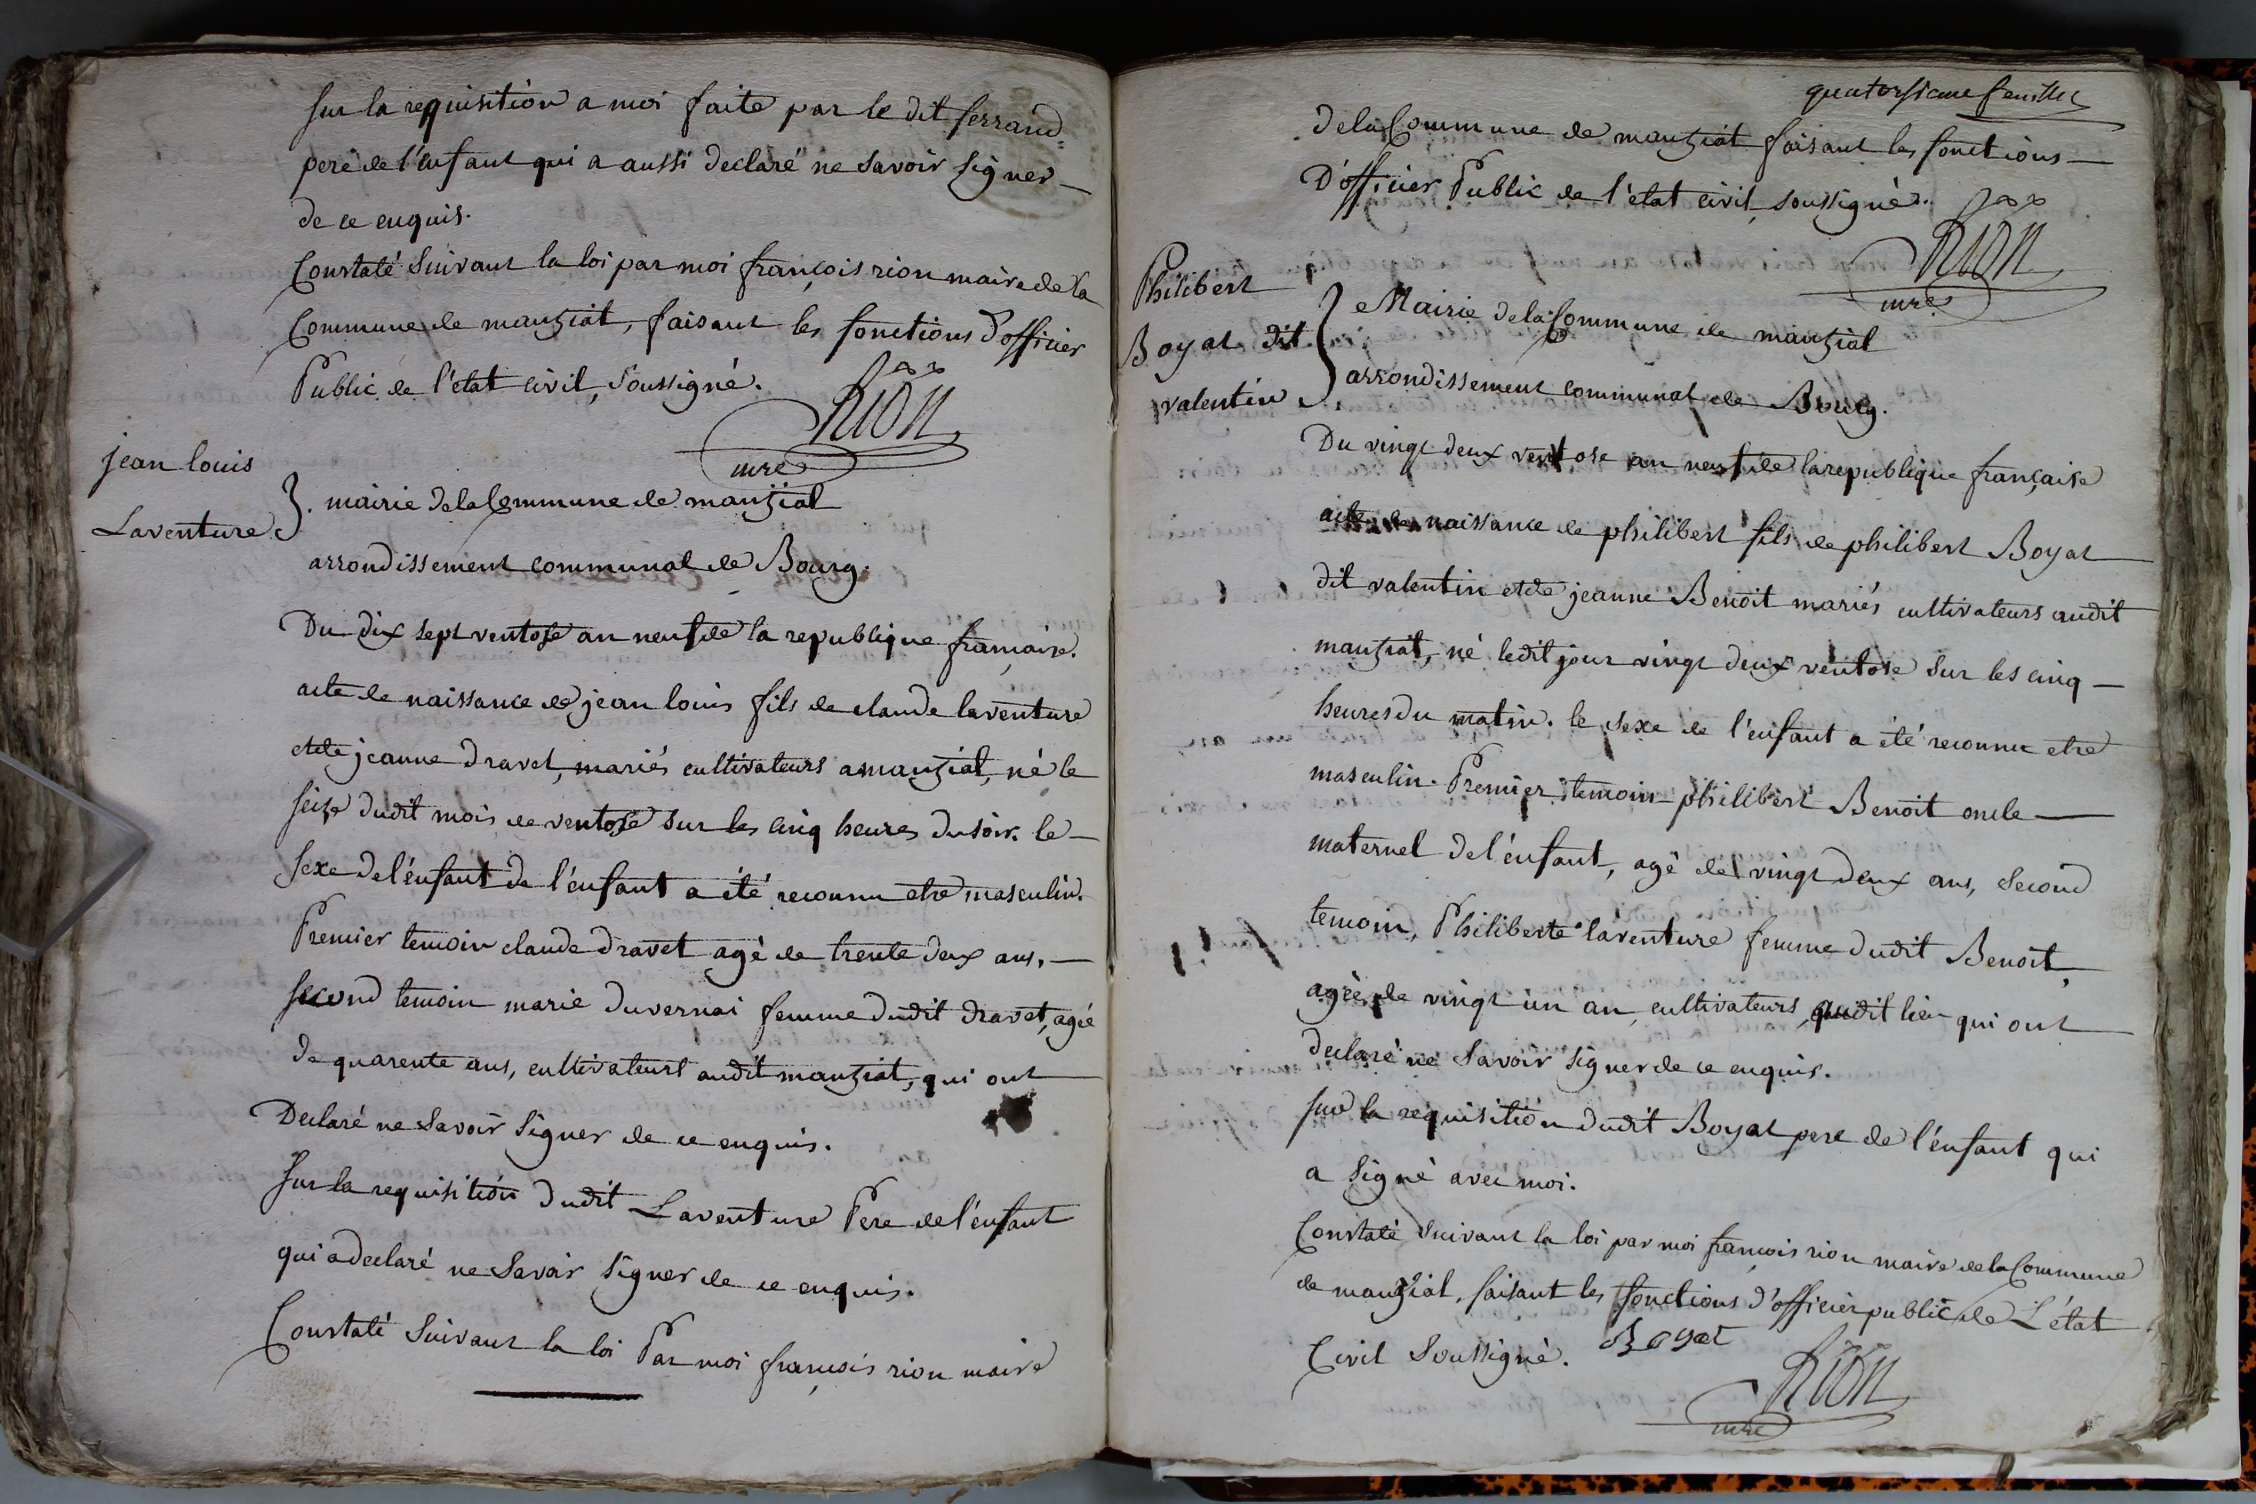 sur la requisition a moi faite par le dit ferrand
pere de l'enfant qui a aussi declaré ne savoir signer
de ce enquis.
Constaté suivant la loi par moi françois rion maire de la
Commune de manziat, faisant les fonctions d'officier
Public de l'etat civil, soussigné.
Rion
mre
jean louis
Laventure
mairie de la Commune de manziat
arrondissement communal de Bourg.
Du dix sept ventose an neuf de la republique française.
acte de naissance de jean louis fils de claude laventure
et de jeanne dravet, mariés cultivateurs a manziat, né le
seize dudit mois de ventose sur les cinq heures du soir. le
sexe de l'enfant de l'enfant a été reconnu etre masculin.
Premier temoin claude dravet agé de trente deux ans,
second temoin marie duvernai femme dudit dravet, agée
de quarente ans, cultivateurs audit manziat, qui ont
Declaré ne savoir signer de ce enquis.
sur la requisition dudit Laventure Pere de l'enfant
qui a declaré ne savoir signer de ce enquis.
Constaté suivant la loi Par moi françois rion maire
quatorsieme feuillet
de la Commune de manziat faisant les fonctions
D'officier Public de l'état civil, soussigné.
Rion
mre
Philibert
Boyat dit
valentin
Mairie de la Commune de manziat
arrondissement communal de Bourg.
Du vingt deux ventose an neuf de la republique française
acte de naissance de philibert fils de philibert Boyat
dit valentin et de jeanne Benoit mariés cultivateurs audit
manziat, né ledit jour vingt deux ventose sur les cinq
heures du matin. le sexe de l'enfant a été reconnu etre
masculin. Premier temoin philibert Benoit oncle
maternel de l'enfant, agé de vingt deux ans, second
temoin, Philiberte laventure femme dudit Benoit,
agée de vingt un an, cultivateurs, audit lieu qui ont
declaré ne savoir signer de ce enquis.
sur la requisition dudit Boyat pere de l'enfant qui
a signé avec moi.
Constaté suivant la loi par moi françois rion maire de la Commune
de manziat, faisant les fonctions d'officier public de L'état
Civil soussigné. Boyat
Rion
mre